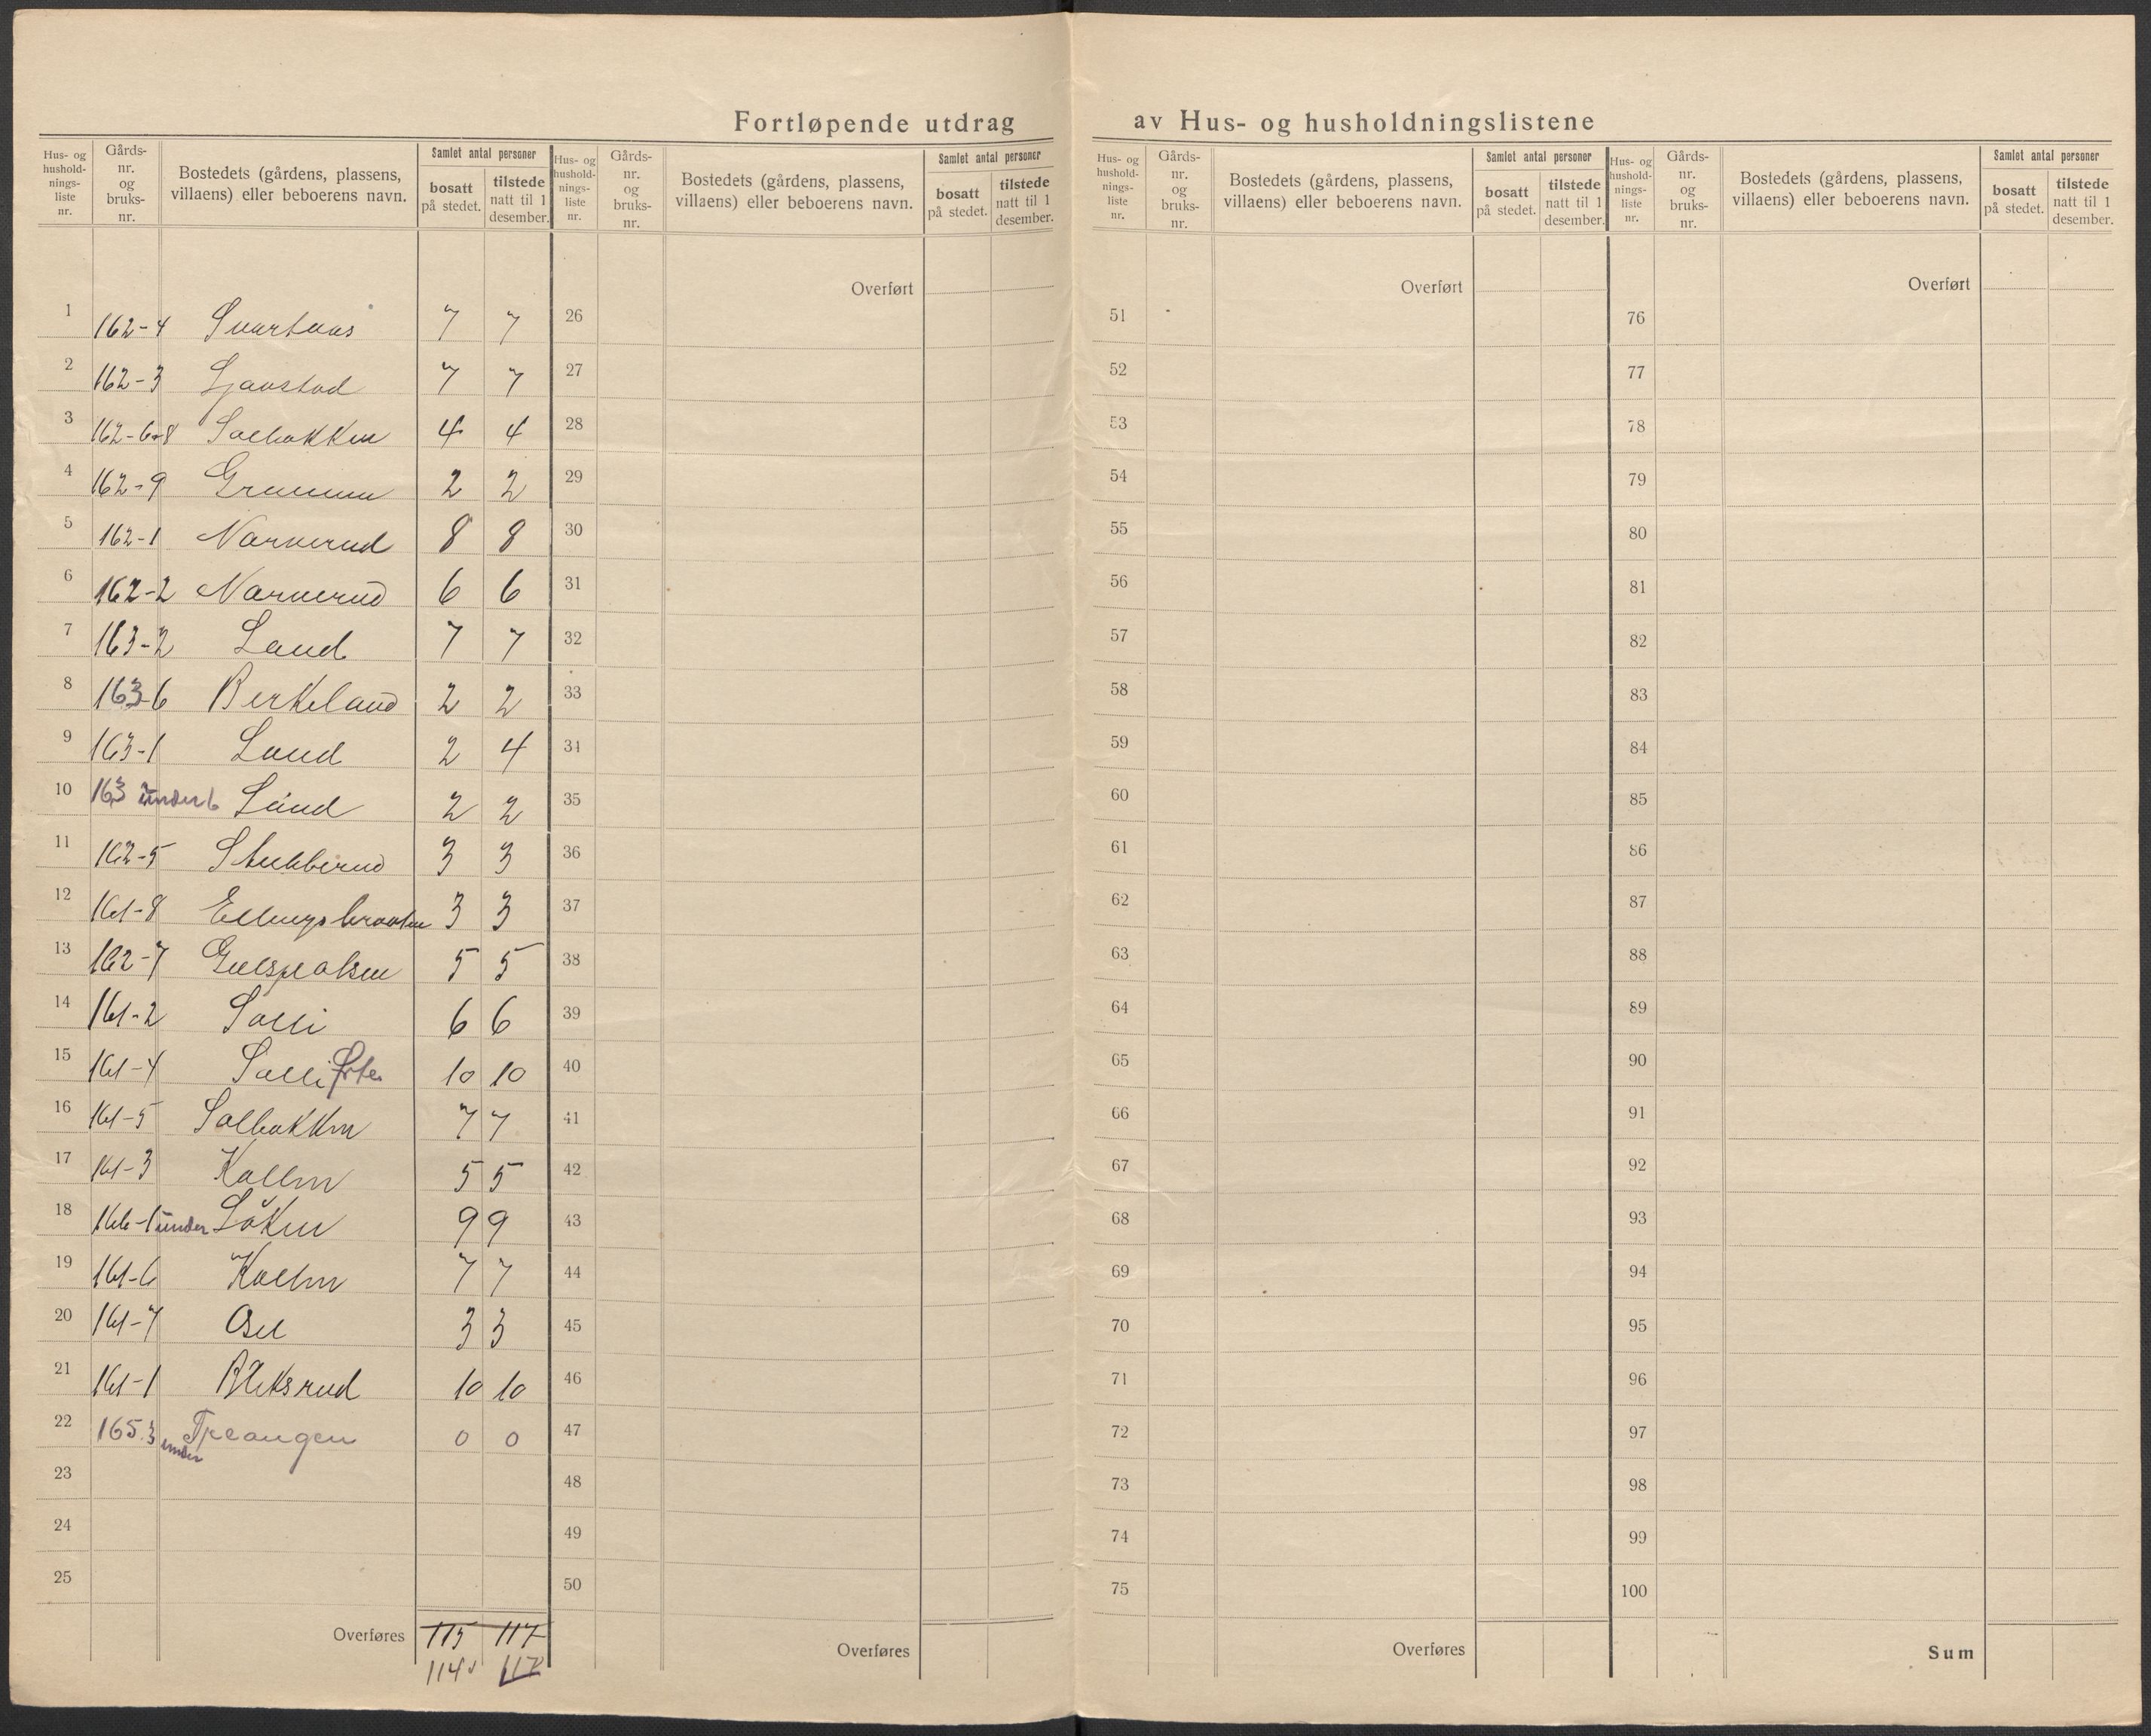 Fortløpende utdrag av Hus- og husholdningslistene
Hus- og hushold-nings-liste nr. Gårds-nr. og bruks-nr. Bostedets (gårdens, plassens, villaens) eller beboerens navn. Samlet antal personer bosatt på stedet. tilstede natt til 1 desember.
1 162-4 Svartaas 7 7
2 162-3 7 7
3 162-6+8 Solbakken 4 4
4 162-9 2 2
5 162-1 Narverud 8 8
6 162-2 Narverud 6 6
7 163-2 Laud 7 7
8 163-6 Birkeland 2 2
9 163-1 Laud 2 4
10 163 under 6 2 2
11 162-5 Stubberud 3 3
12 161-8 Ellingsbraaten 3 3
13 162-7 5 5
14 161-2 Solli 6 6
15 161-4 Solli Østre 10 10
16 161-5 Solbakken 7 7
17 161-3 Kollen 5 5
18 166-1 under Løken 9 9
19 161-6 Kollen 7 7
20 161-7 3 3
21 161-1 Bleksrud 10 10
22 165.3 under Tjeangen 0 0
23
24
25
Overføres 115 117
114 117
Hus- og hushold-nings-liste nr. Gårds-nr. og bruks-nr. Bostedets (gårdens, plassens, villaens) eller beboerens navn. Samlet antal personer bosatt på stedet. tilstede natt til 1 desember.
Overført
26
27
28
29
30
31
32
33
34
35
36
37
38
39
40
41
42
43
44
45
46
47
48
49
50
Overføres
Hus- og hushold-nings-liste nr. Gårds-nr. og bruks-nr. Bostedets (gårdens, plassens, villaens) eller beboerens navn. Samlet antal personer bosatt på stedet. tilstede natt til 1 desember.
Overført
51
52
53
54
55
56
57
58
59
60
61
62
63
64
65
66
67
68
69
70
71
72
73
74
75
Overføres
Hus- og hushold-nings-liste nr. Gårds-nr. og bruks-nr. Bostedets (gårdens, plassens, villaens) eller beboerens navn. Samlet antal personer bosatt på stedet. tilstede natt til 1 desember.
Overført
76
77
78
79
80
81
82
83
84
85
86
87
88
89
90
91
92
93
94
95
96
97
98
99
100
Sum